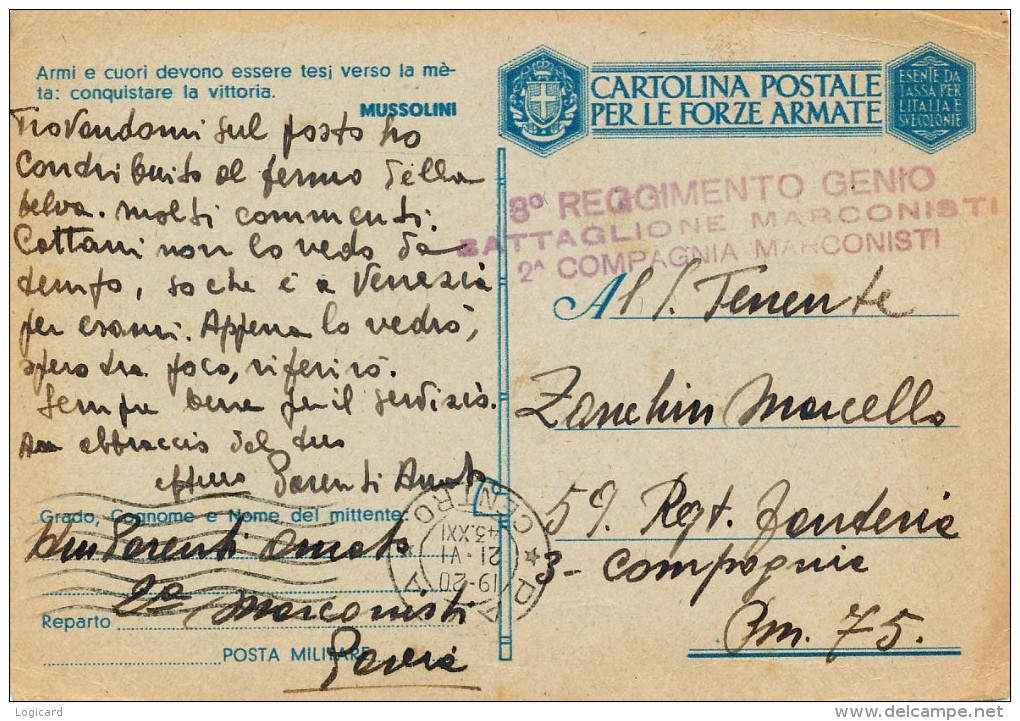 Armi e cuori devono essere tesi verso la mè-
ta: conquistare la vittoria.
MUSSOLINI
Trovandomi sul posto ho
contribuito al fermo della
belva. Molti commenti.
Cattani non lo vedo da
tempo, so che è a Venezia
per esami. Appena lo vedrò,
spero tra poco, riferirò.
Sempre bene per il servizio.
abbraccio dal tuo
Parenti Amato
Grado, Cognome e Nome del mittente:
Parenti Amato
2a Marconisti
Reparto
POSTA MILITARE
Pavia
CARTOLINA POSTALE
PER LE FORZE ARMATE
ESENTE DA
TASSA PER
L'ITALIA E
SVE COLONIE
8° REGGIMENTO GENIO
BATTAGLIONE MARCONISTI
2A COMPAGNIA MARCONISTI
Al S. Tenente
Zanchin Marcello
59. Regt. fanteria
3- Compagnia
Pm. 75.
PAVIA CENTRO
19-20
21-VI
43.XXI
Logicard
www.delcampe.net